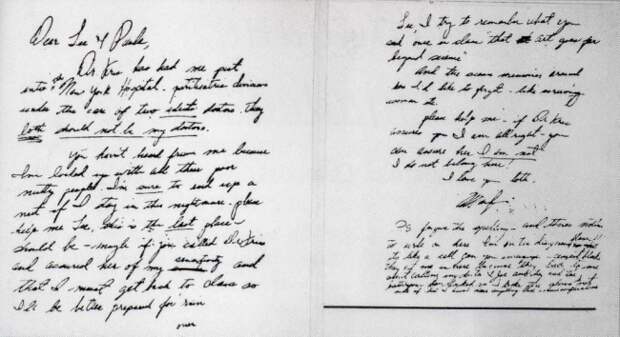 Dear Lee & Paula,
Dr Kris has had me put
into the New York Hospital - pschiatric division
under the care of two idiot doctors. they
both should not be my doctors.
You haven't heard from me because
I'm locked up with all these poor
nutty people. I'm sure to end up a
nut if I stay in this nightmare - please
help me Lee, this is the last place I
should be - maybe if you called Dr Kris
and assured her of my sensitivity and
that I must get back to class so
I'll be better prepared for rain
over
Lee, I try to remember what you
said once in class "that art goes far
beyond science"
And the scary memories around
me I'd like to forget - like screaming
women etc.
please help me - if Dr Kris
assures you I am all right - you
can assure her I am not.
I do not belong here!
I love you both
P.S. forgive the spelling - and theres nothing
to write on here. I'm on the dangerous floor!!
its like a cell. can you imagine - cement blocks
they put me in here because they lied to me
about calling my doctor & Joe and they had the
bathroom door locked so I broke the glass